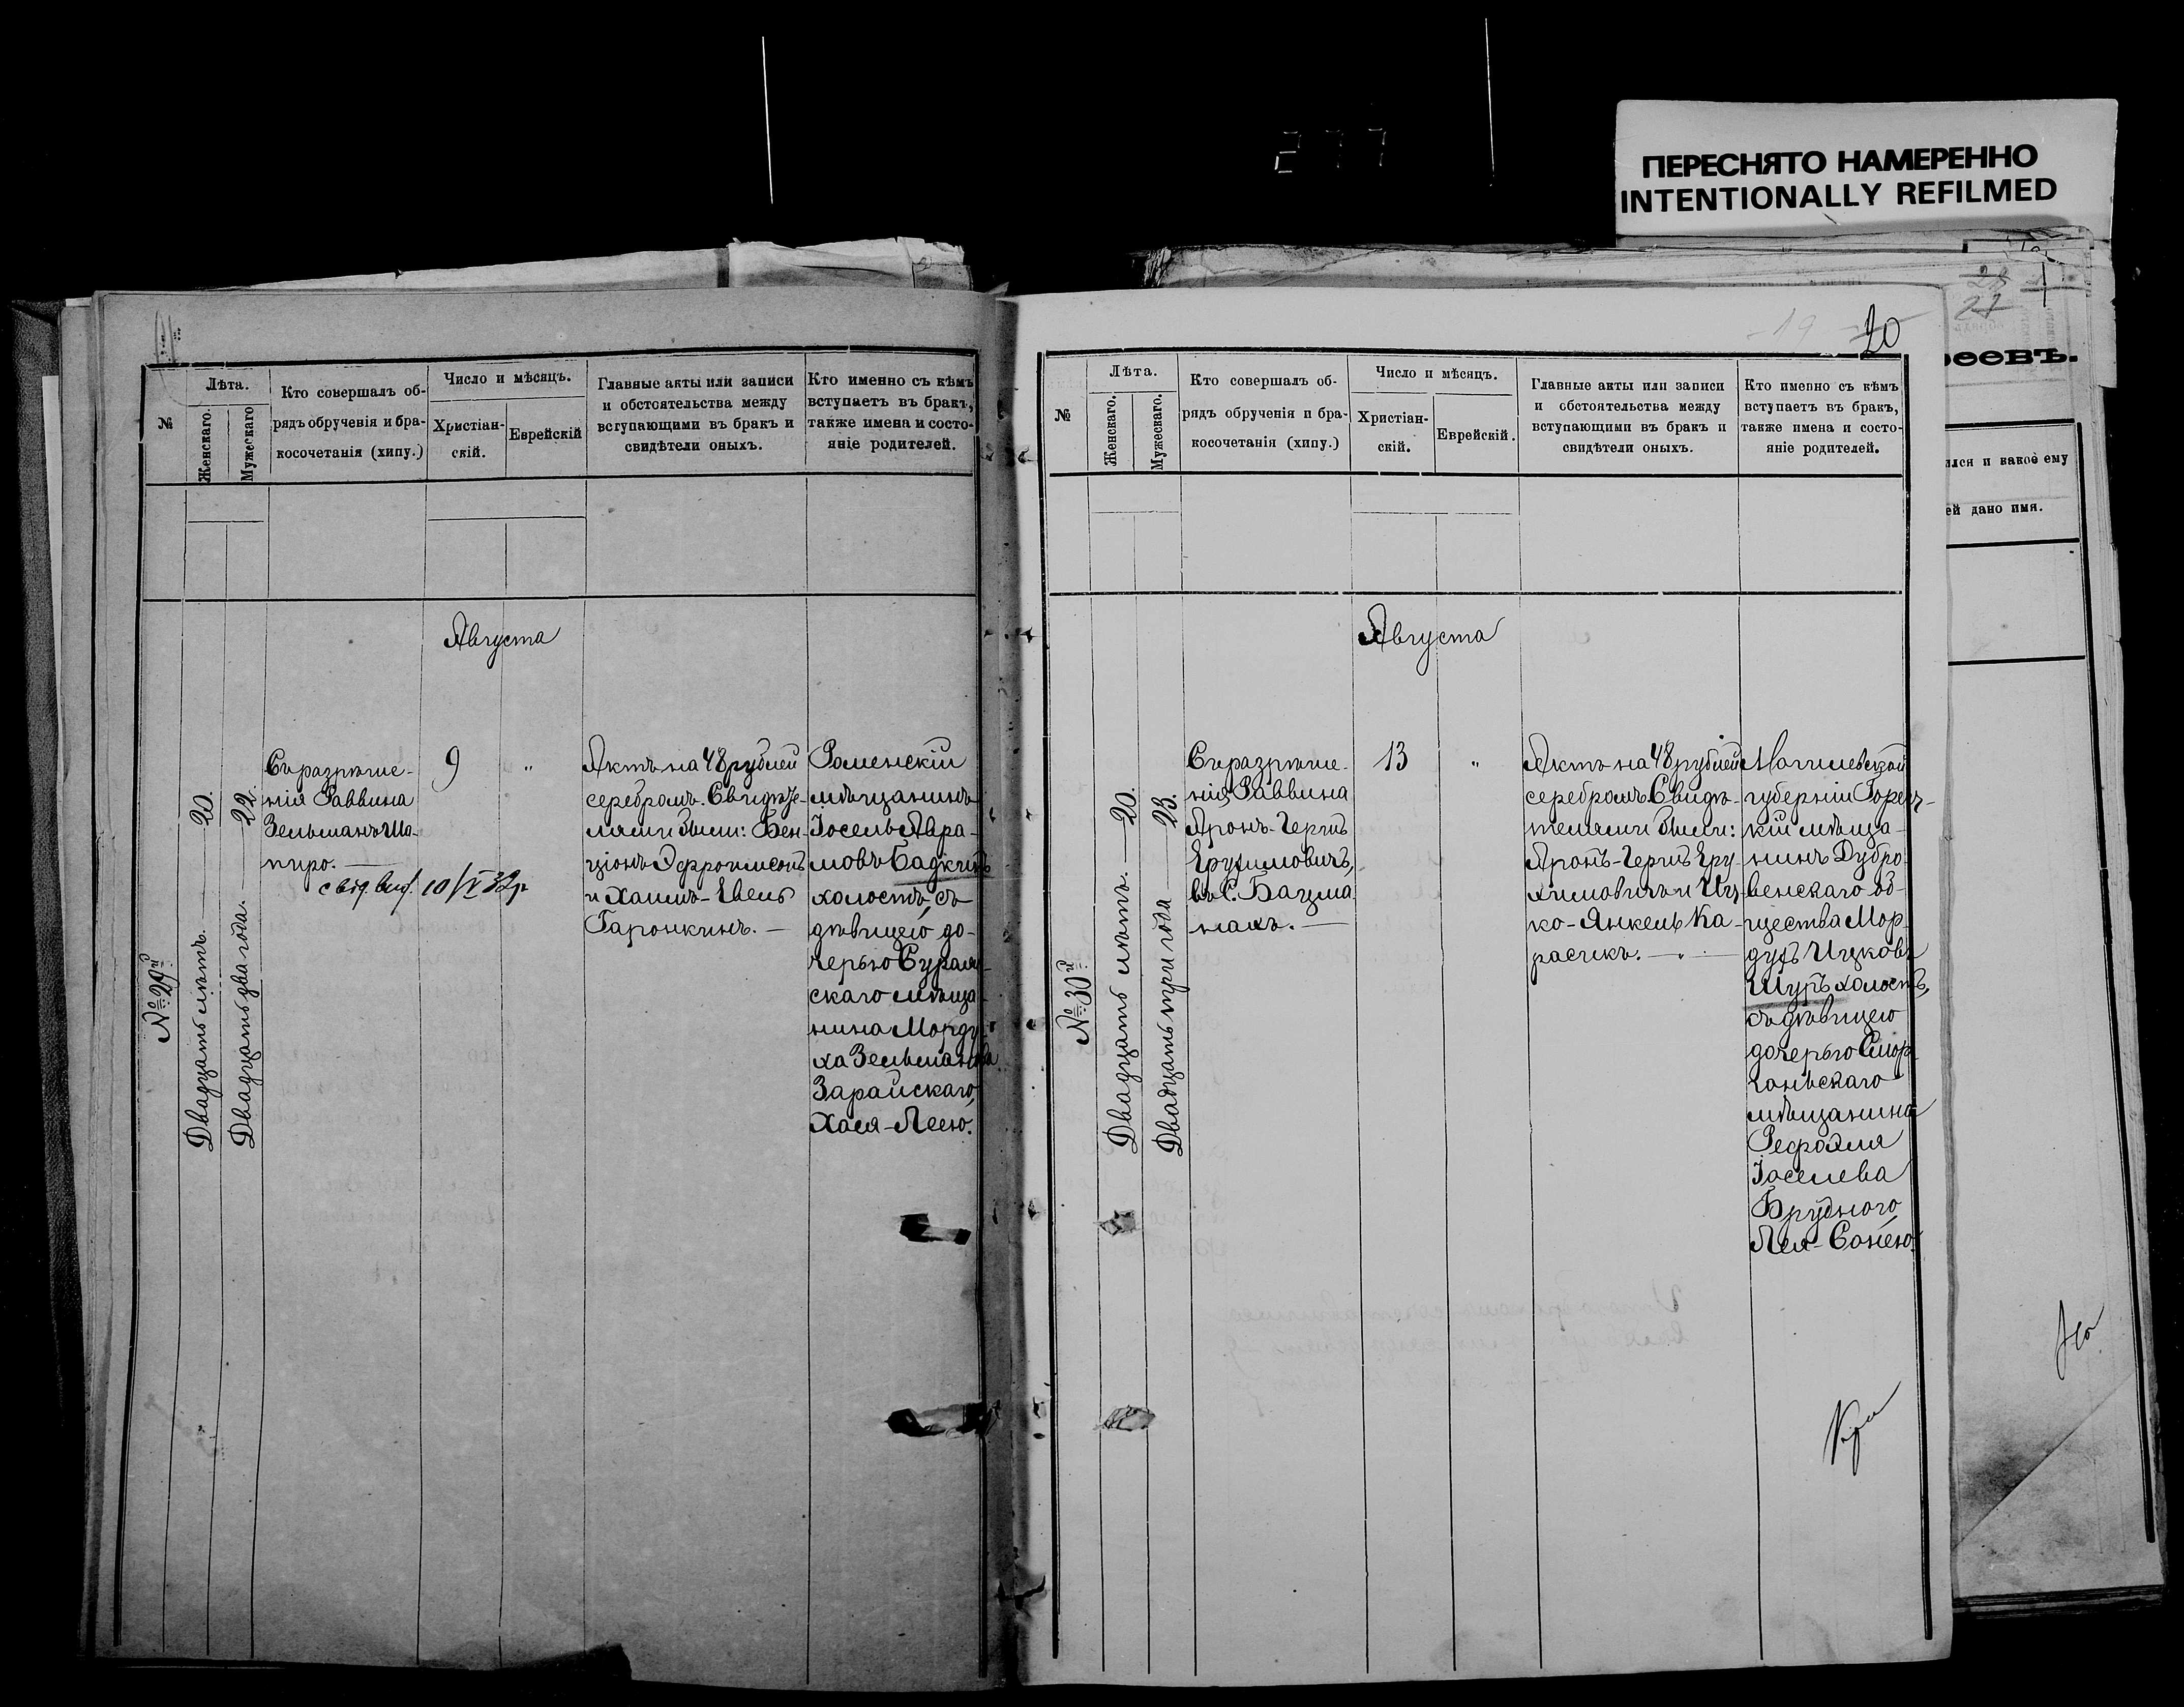 277
ПЕРЕСНЯТО НАМЕРЕННО
INTENTIONALLY REFILMED
№
Лѣта.
Женскаго.
Мужескаго
Кто совершалъ об-
рядъ обрученія и бра-
косочетанія (хипу.)
Число и мѣсяцъ.
Христіан-
скій.
Еврейскій
Главные акты или записи
и обстоятельства между
вступающими въ бракъ и
свидѣтели оныхъ.
Кто именно съ кѣмъ
вступаетъ въ бракъ,
также имена и состо-
яніе родителей.
Августа
№ 29й
Двадцать лѣтъ. — 20.
Двадцать два года. — 22.
Съ разрѣше-
нія Раввина
Зельманъ Ша-
пиро. —
с від. вид. 10/V 32 р
9
"
Актъ на 48 рублей
серебромъ. Свидѣте-
лями были: Бен-
ціонъ Эфроимсонъ
и Хаимъ-Евель
Гаронкинъ. —
Роменскій
мѣщанинъ
Іосель Авра-
мовъ Бадкинъ
холостъ, съ
дѣвицею до-
черью Сураж-
скаго мѣща-
нина Морду-
ха Зельманова
Зарайскаго,
Хася-Леею.
19
20
№
Лѣта.
Женскаго.
Мужескаго.
Кто совершалъ об-
рядъ обрученія и бра-
косочетанія (хипу.)
Число и мѣсяцъ.
Христіан-
скій.
Еврейскій.
Главные акты или записи
и обстоятельства между
вступающими въ бракъ и
свидѣтели оныхъ.
Кто именно съ кѣмъ
вступаетъ въ бракъ,
также имена и состо-
яніе родителей.
Августа
№ 30й
Двадцать лѣтъ. — 20.
Двадцать три года — 23.
Съ разрѣше-
нія Раввина
Аронъ-Герцъ
Ерухимовичъ,
въ С. Бацма-
нахъ. —
13
"
Актъ на 48 рублей
серебромъ. Свидѣ-
телями были:
Аронъ-Герцъ Еру-
химовичъ и Иц-
ко-Янкель Ка-
расикъ. —
Могилевской
губерніи Горец-
кій мѣща-
нинъ Дубро-
венскаго об-
щества Мор-
духъ Ицковъ
Шуръ холостъ,
съ дѣвицею
дочерью Смор-
гоньскаго
мѣщанина
Рефоэля
Іоселева
Брудного
Лея-Сонею.
28
27
реевъ.
ился и какое ему
ей дано имя.